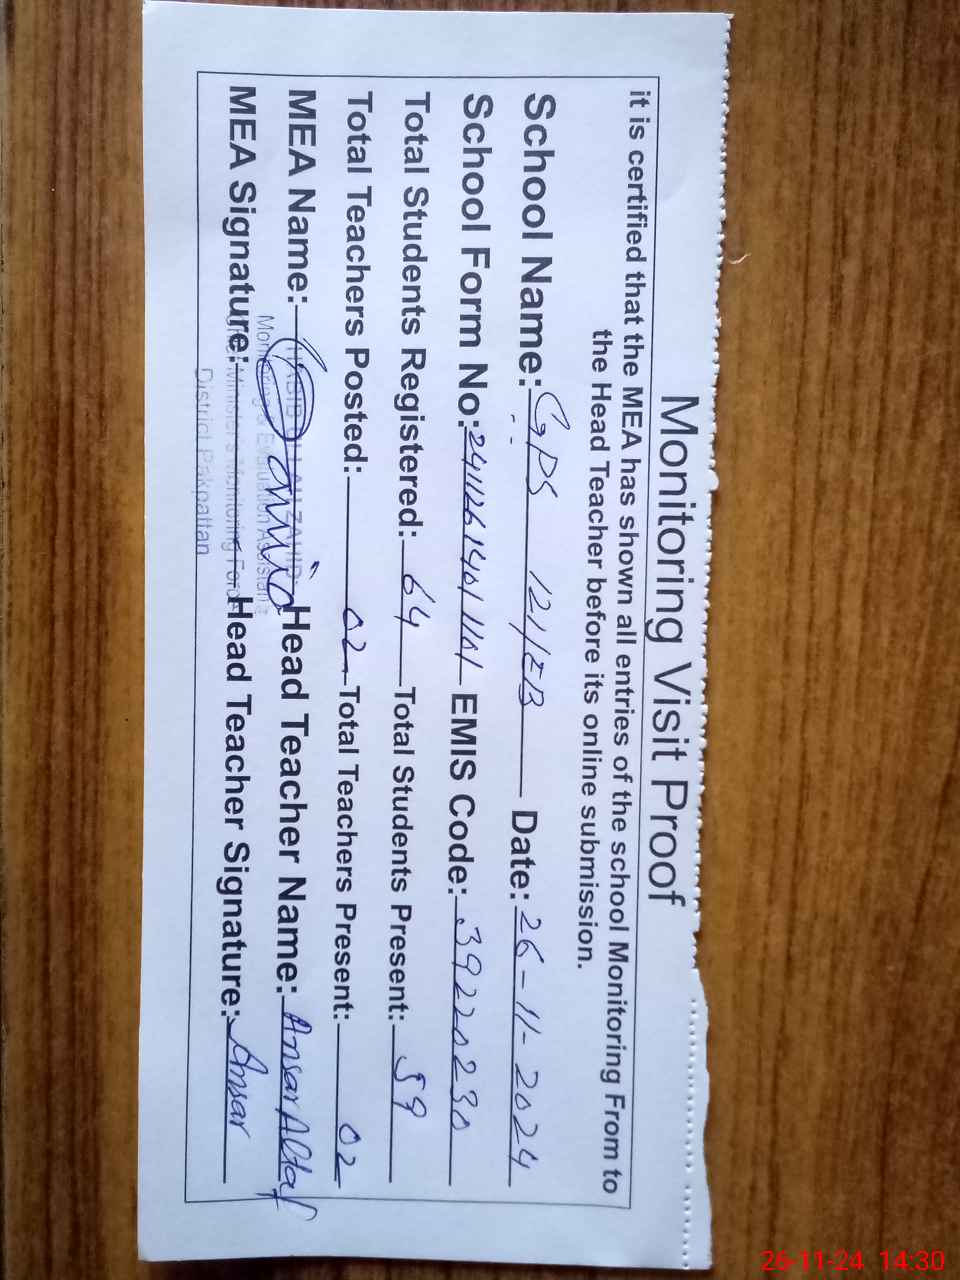 Monitoring Visit Proof
it is certified that the MEA has shown all entries of the school Monitoring From to
the Head Teacher before its online submission.
School Name: GPS 121/EB Date: 26-11-2024
School Form No: EMIS Code: 39220230
Total Students Registered: 64 Total Students Present: 59
Total Teachers Posted: 02 Total Teachers Present: 02
MEA Name: Head Teacher Name: Ansar Altaf
Monitoring & Evaluation Assistant
MEA Signature: Head Teacher Signature: Ansar
Chief Minister's Monitoring Force
District Pakpattan
26-11-24 14:30